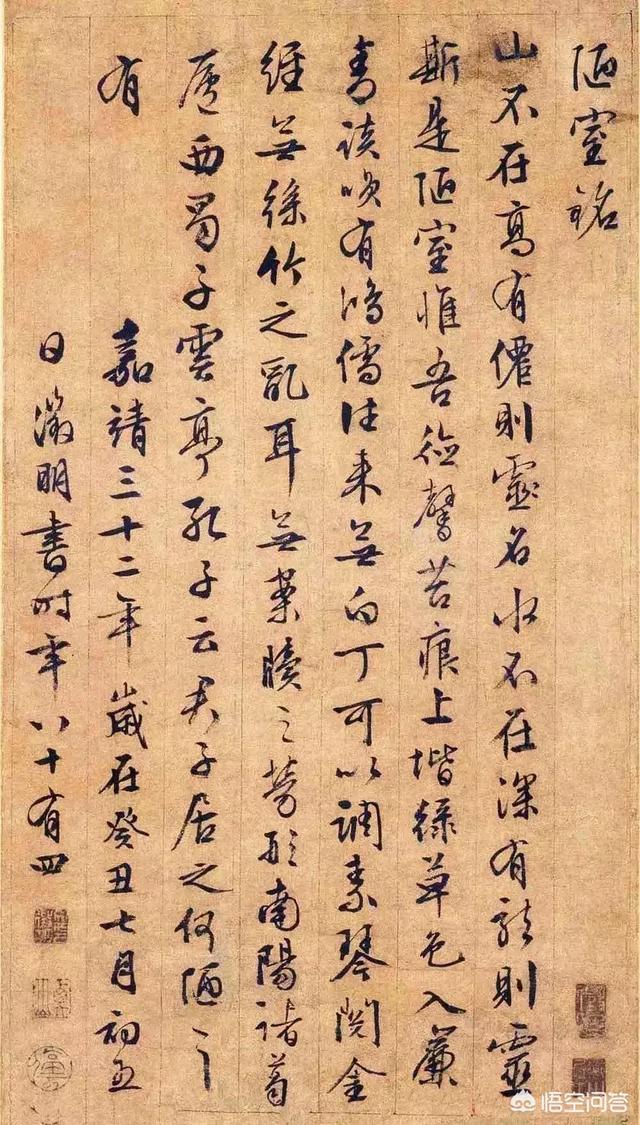 陋室銘
山不在高有僊則靈名水不在深有龍則靈
斯是陋室惟吾德馨苔痕上堦綠草色入簾
青談咲有鴻儒往來無白丁可以調素琴閱金
經無絲竹之亂耳無案牘之勞形南陽諸葛
廬西蜀子雲亭孔子云君子居之何陋之
有
嘉靖三十二年歲在癸丑七月初五
日徵明書時年八十有四
悟空问答